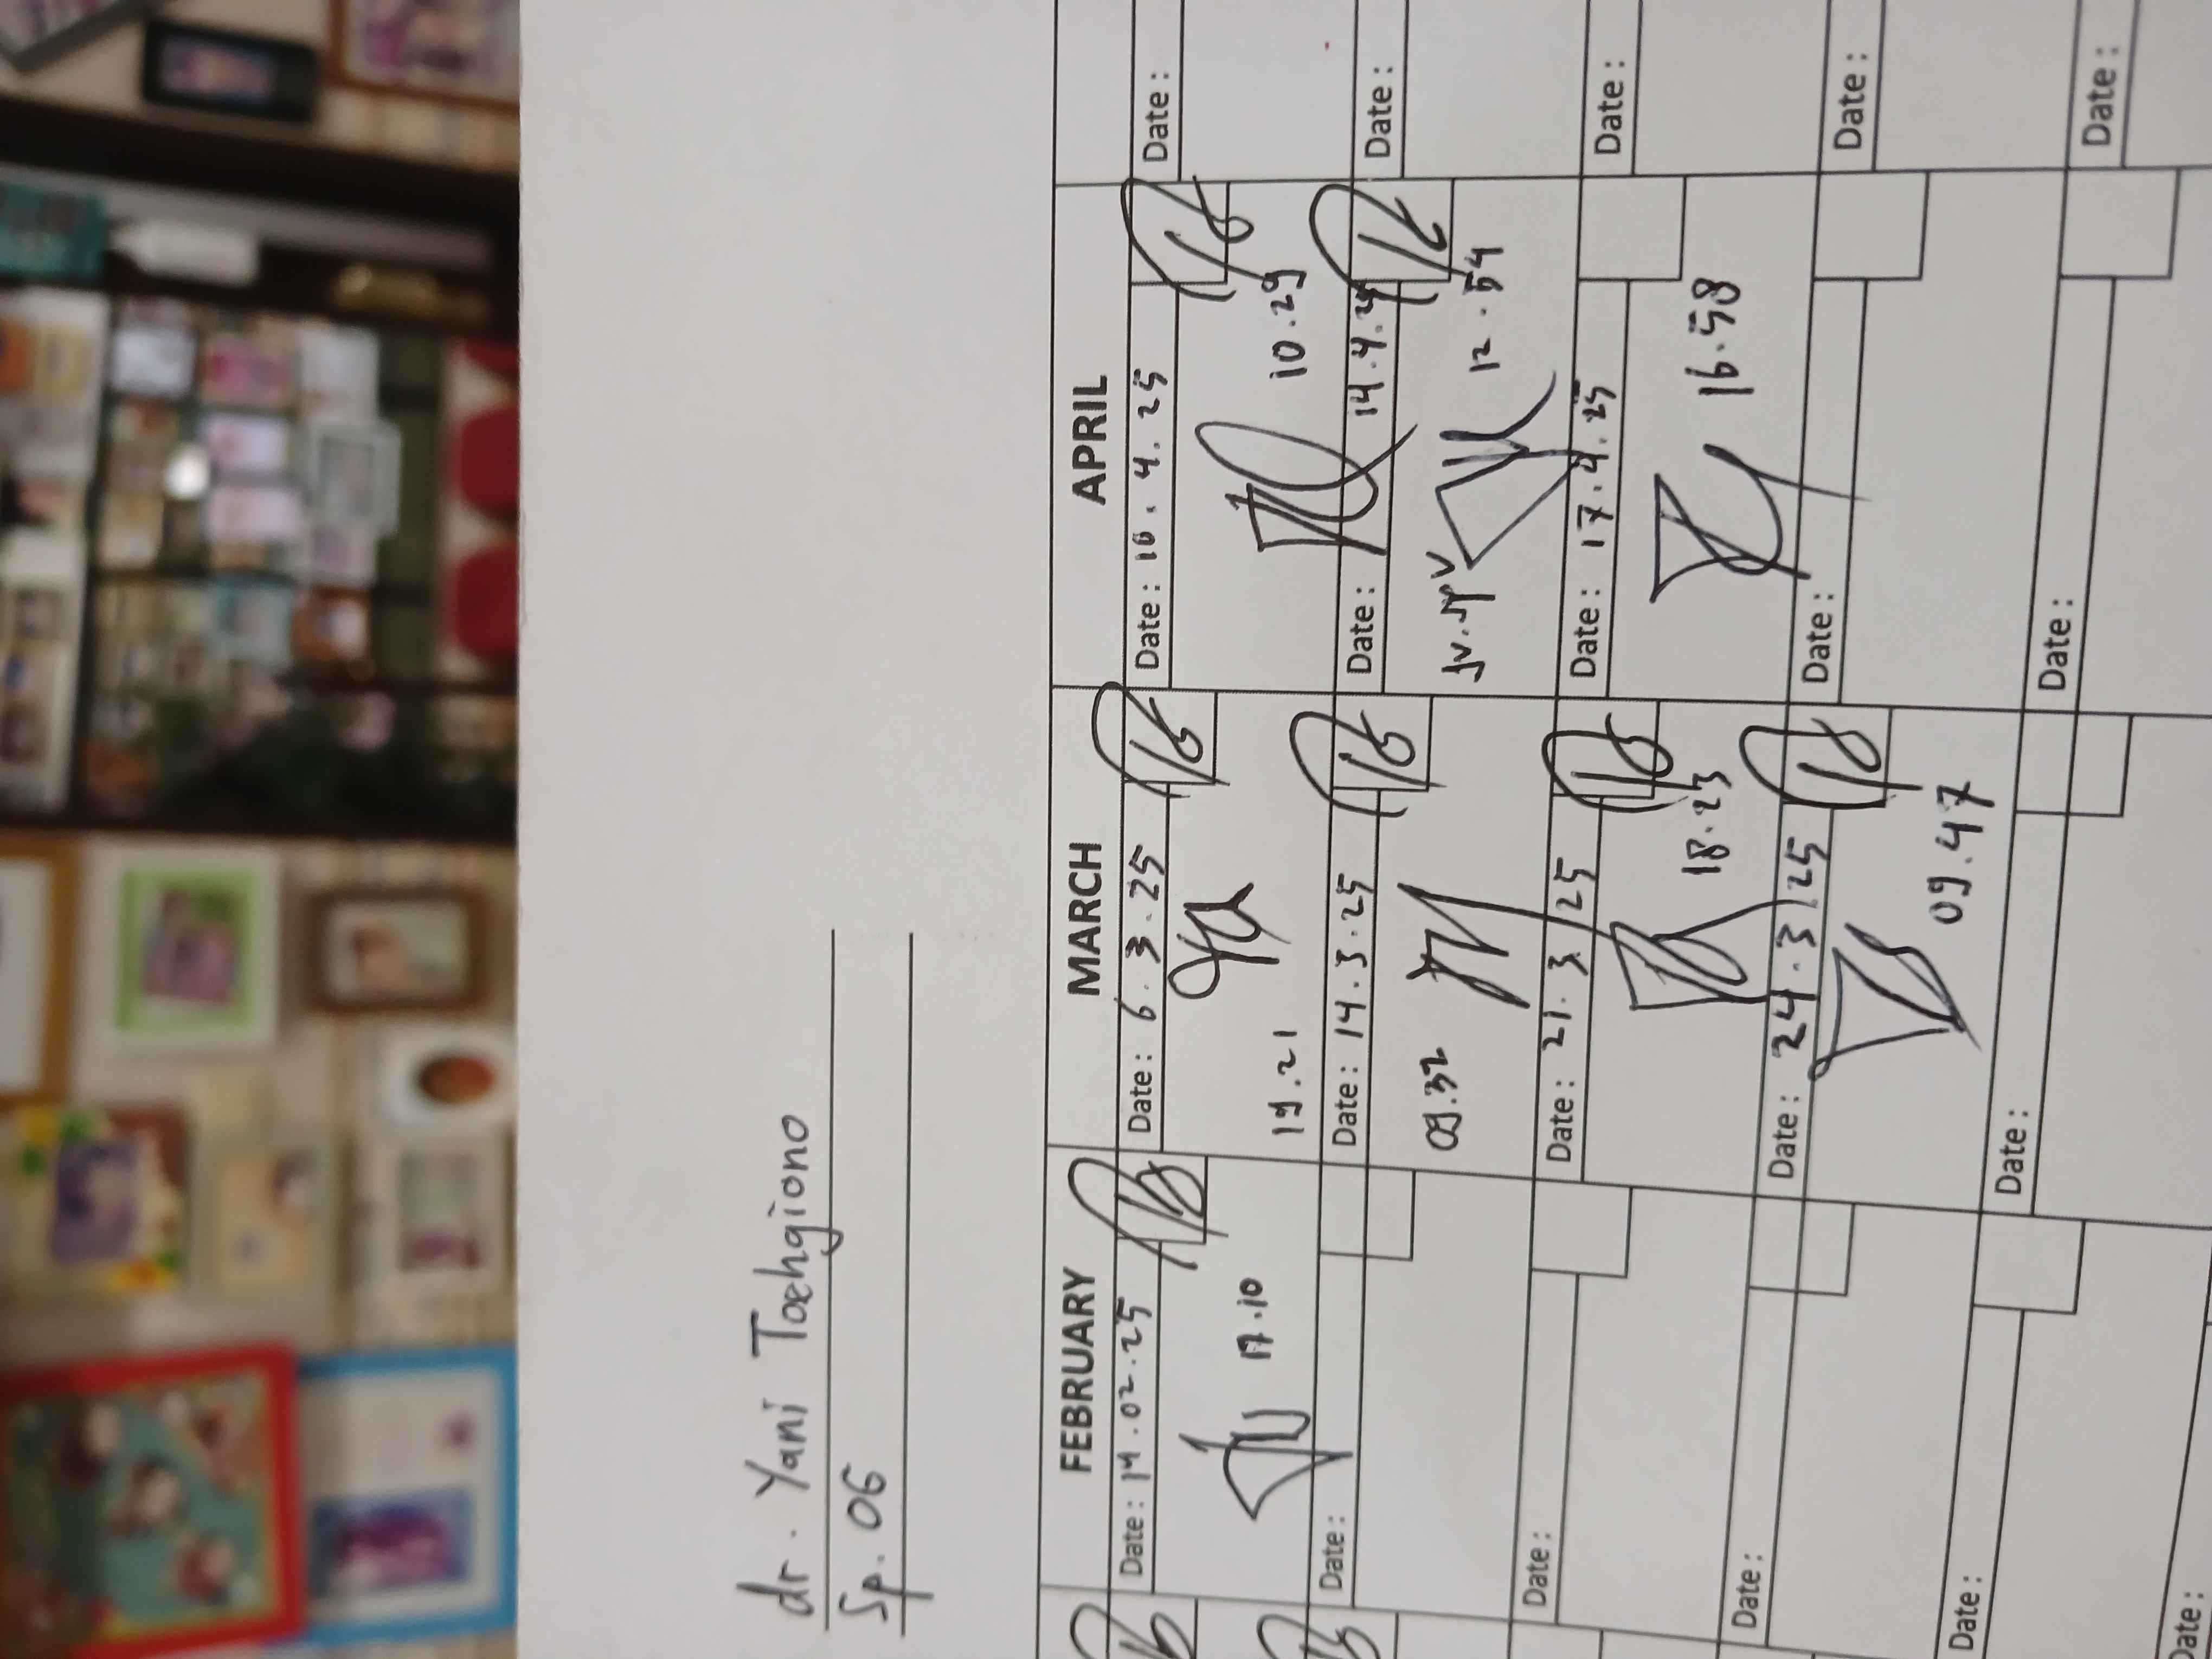 dr. Yani Toehgiono
Sp. OG
FEBRUARY MARCH APRIL
Date: 6.3.25
Date: 10.4.25
Date:
19.21
10.29
Date:
Date: 14.3.25
Date: 14.4.25
Date:
09.32
12.54
Date:
Date: 21.3 25
Date: 17.4.25
Date:
18.23
16.58
Date:
Date: 24.3 25
Date:
Date:
09.47
Date:
Date:
Date:
Date:
Date: